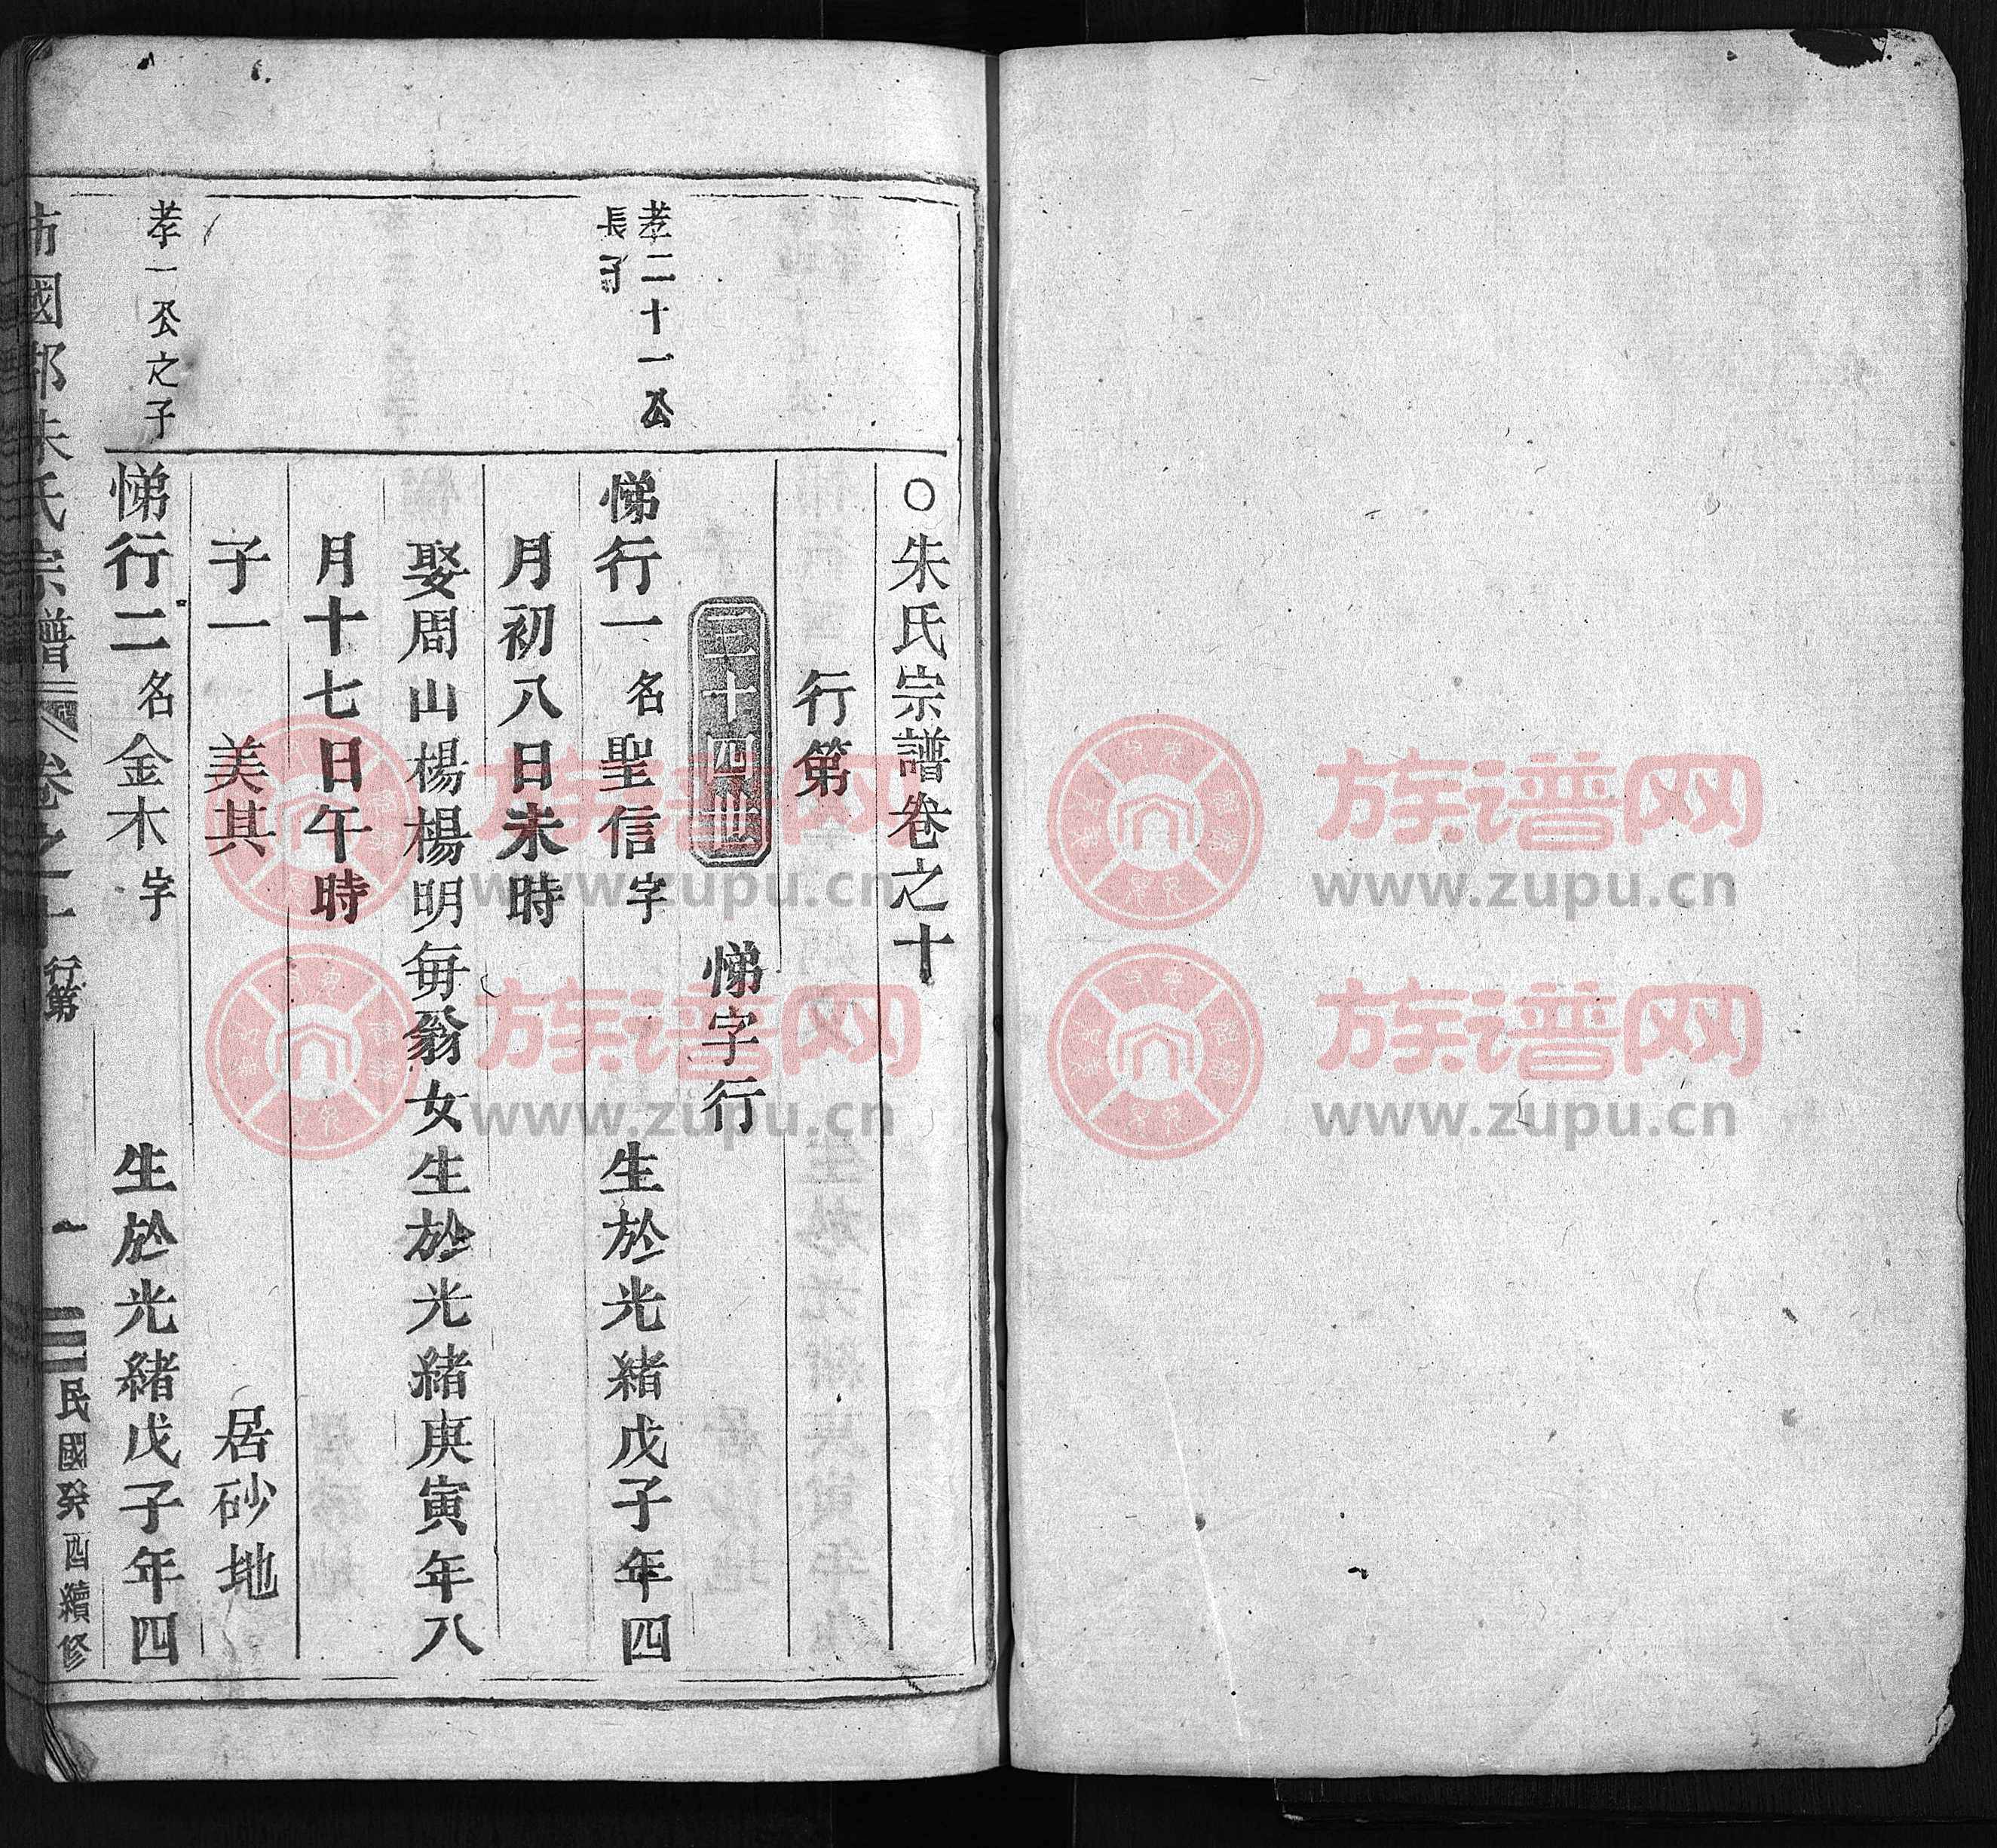 ○朱氏宗譜卷之十
行第
三十四世 悌字行
孝二十一公
長子
悌行一名聖信字 生於光緒戊子年四
月初八日未時
娶間山楊楊明每翁女生於光緒庚寅年八
月十七日午時
子一 美其 居砂地
孝一公之子
悌行二名金木字 生於光緒戊子年四
沛國郡朱氏宗譜 卷之十 行第 一 民國癸酉續修
族谱网
www.zupu.cn
族谱网
www.zupu.cn
族谱网
www.zupu.cn
族谱网
www.zupu.cn